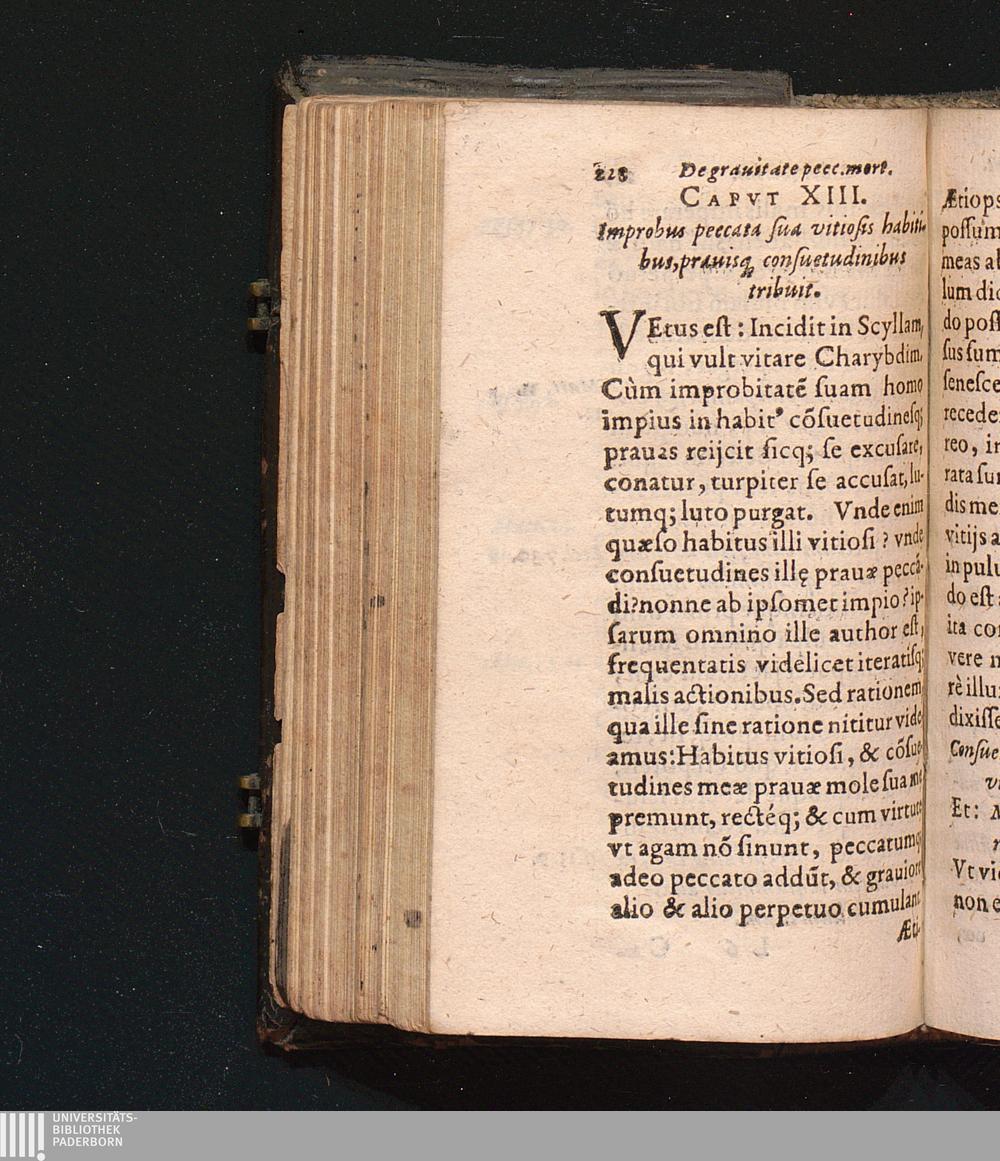 228 De grauitate pecc. mort.
CAPVT XIII.
Improbus peccata sua vitiosis habiti-
bus, prauisq; consuetudinibus
tribuit.
VEtus est: Incidit in Scyllam,
qui vult vitare Charybdim.
Cùm improbitatē suam homo
impius in habit⁹ cōsuetudinesq;
prauas reijcit sicq; se excusare,
conatur, turpiter se accusat, lu-
tumq; luto purgat. Vnde enim
quæso habitus illi vitiosi? vnde
consuetudines illę prauæ peccā-
di? nonne ab ipsomet impio? ip-
sarum omnino ille author est,
frequentatis videlicet iteratisq;
malis actionibus. Sed rationem
qua ille sine ratione nititur vide
amus: Habitus vitiosi, & cōsue-
tudines meæ prauæ mole sua me
premunt, rectéq; & cum virtute
vt agam nō sinunt, peccatumq;
adeo peccato addūt, & grauiore
alio & alio perpetuo cumulant
Æti-
Ætiops
possum
meas al
lum dic
do poss
sus sum
senesce
recede
reo, in
rata sun
dis me
vitijs a
in pulu
do est
ita con
vere n
rè illu
dixisse
Consue
vi
Et:
Vt vi
non e
UNIVERSITÄTS-
BIBLIOTHEK
PADERBORN